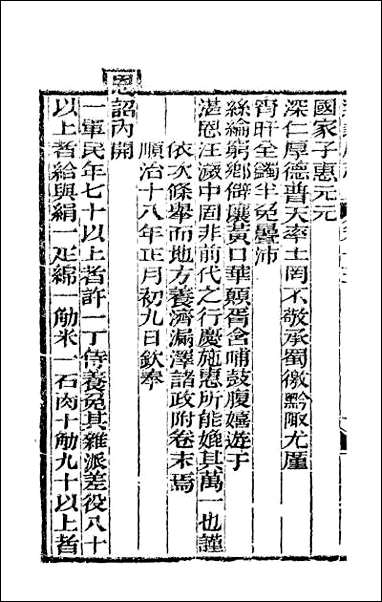 國家子惠元元
深仁厚德普天率土罔不敬承蜀徼黔陬尤廑
宵旰全蠲半免疊沛
絲綸窮鄉僻壤黃口華顛胥含哺鼓腹嬉遊于
湛恩汪濊中固非前代之行慶施惠所能媲其萬一也謹
依次條舉而地方養濟漏澤諸政附卷末焉
順治十八年正月初九日欽奉
恩詔內開
一軍民年七十以上者許一丁侍養免其雜派差役八十
以上者給與絹一疋綿一觔米一石肉十觔九十以上者